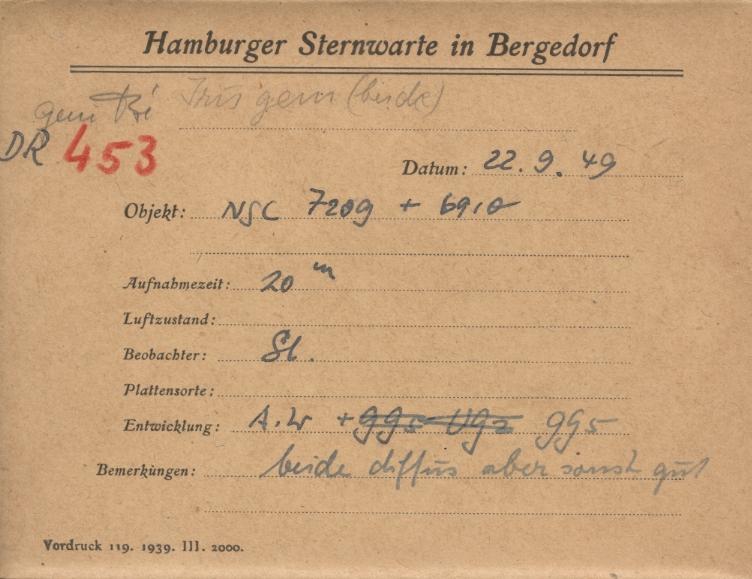 Hamburger Sternwarte in Bergedorf
Iris gem (beide)
gem
DR 453
Datum: 22.9.49
Objekt: NGC 7209 + 6910
Aufnahmezeit: 20 m
Luftzustand:
Beobachter: St.
Plattensorte:
Entwicklung: A.W + gg5 Ug2 gg5
Bemerkungen: beide diffus aber sonst gut
Vordruck 119. 1939. III. 2000.